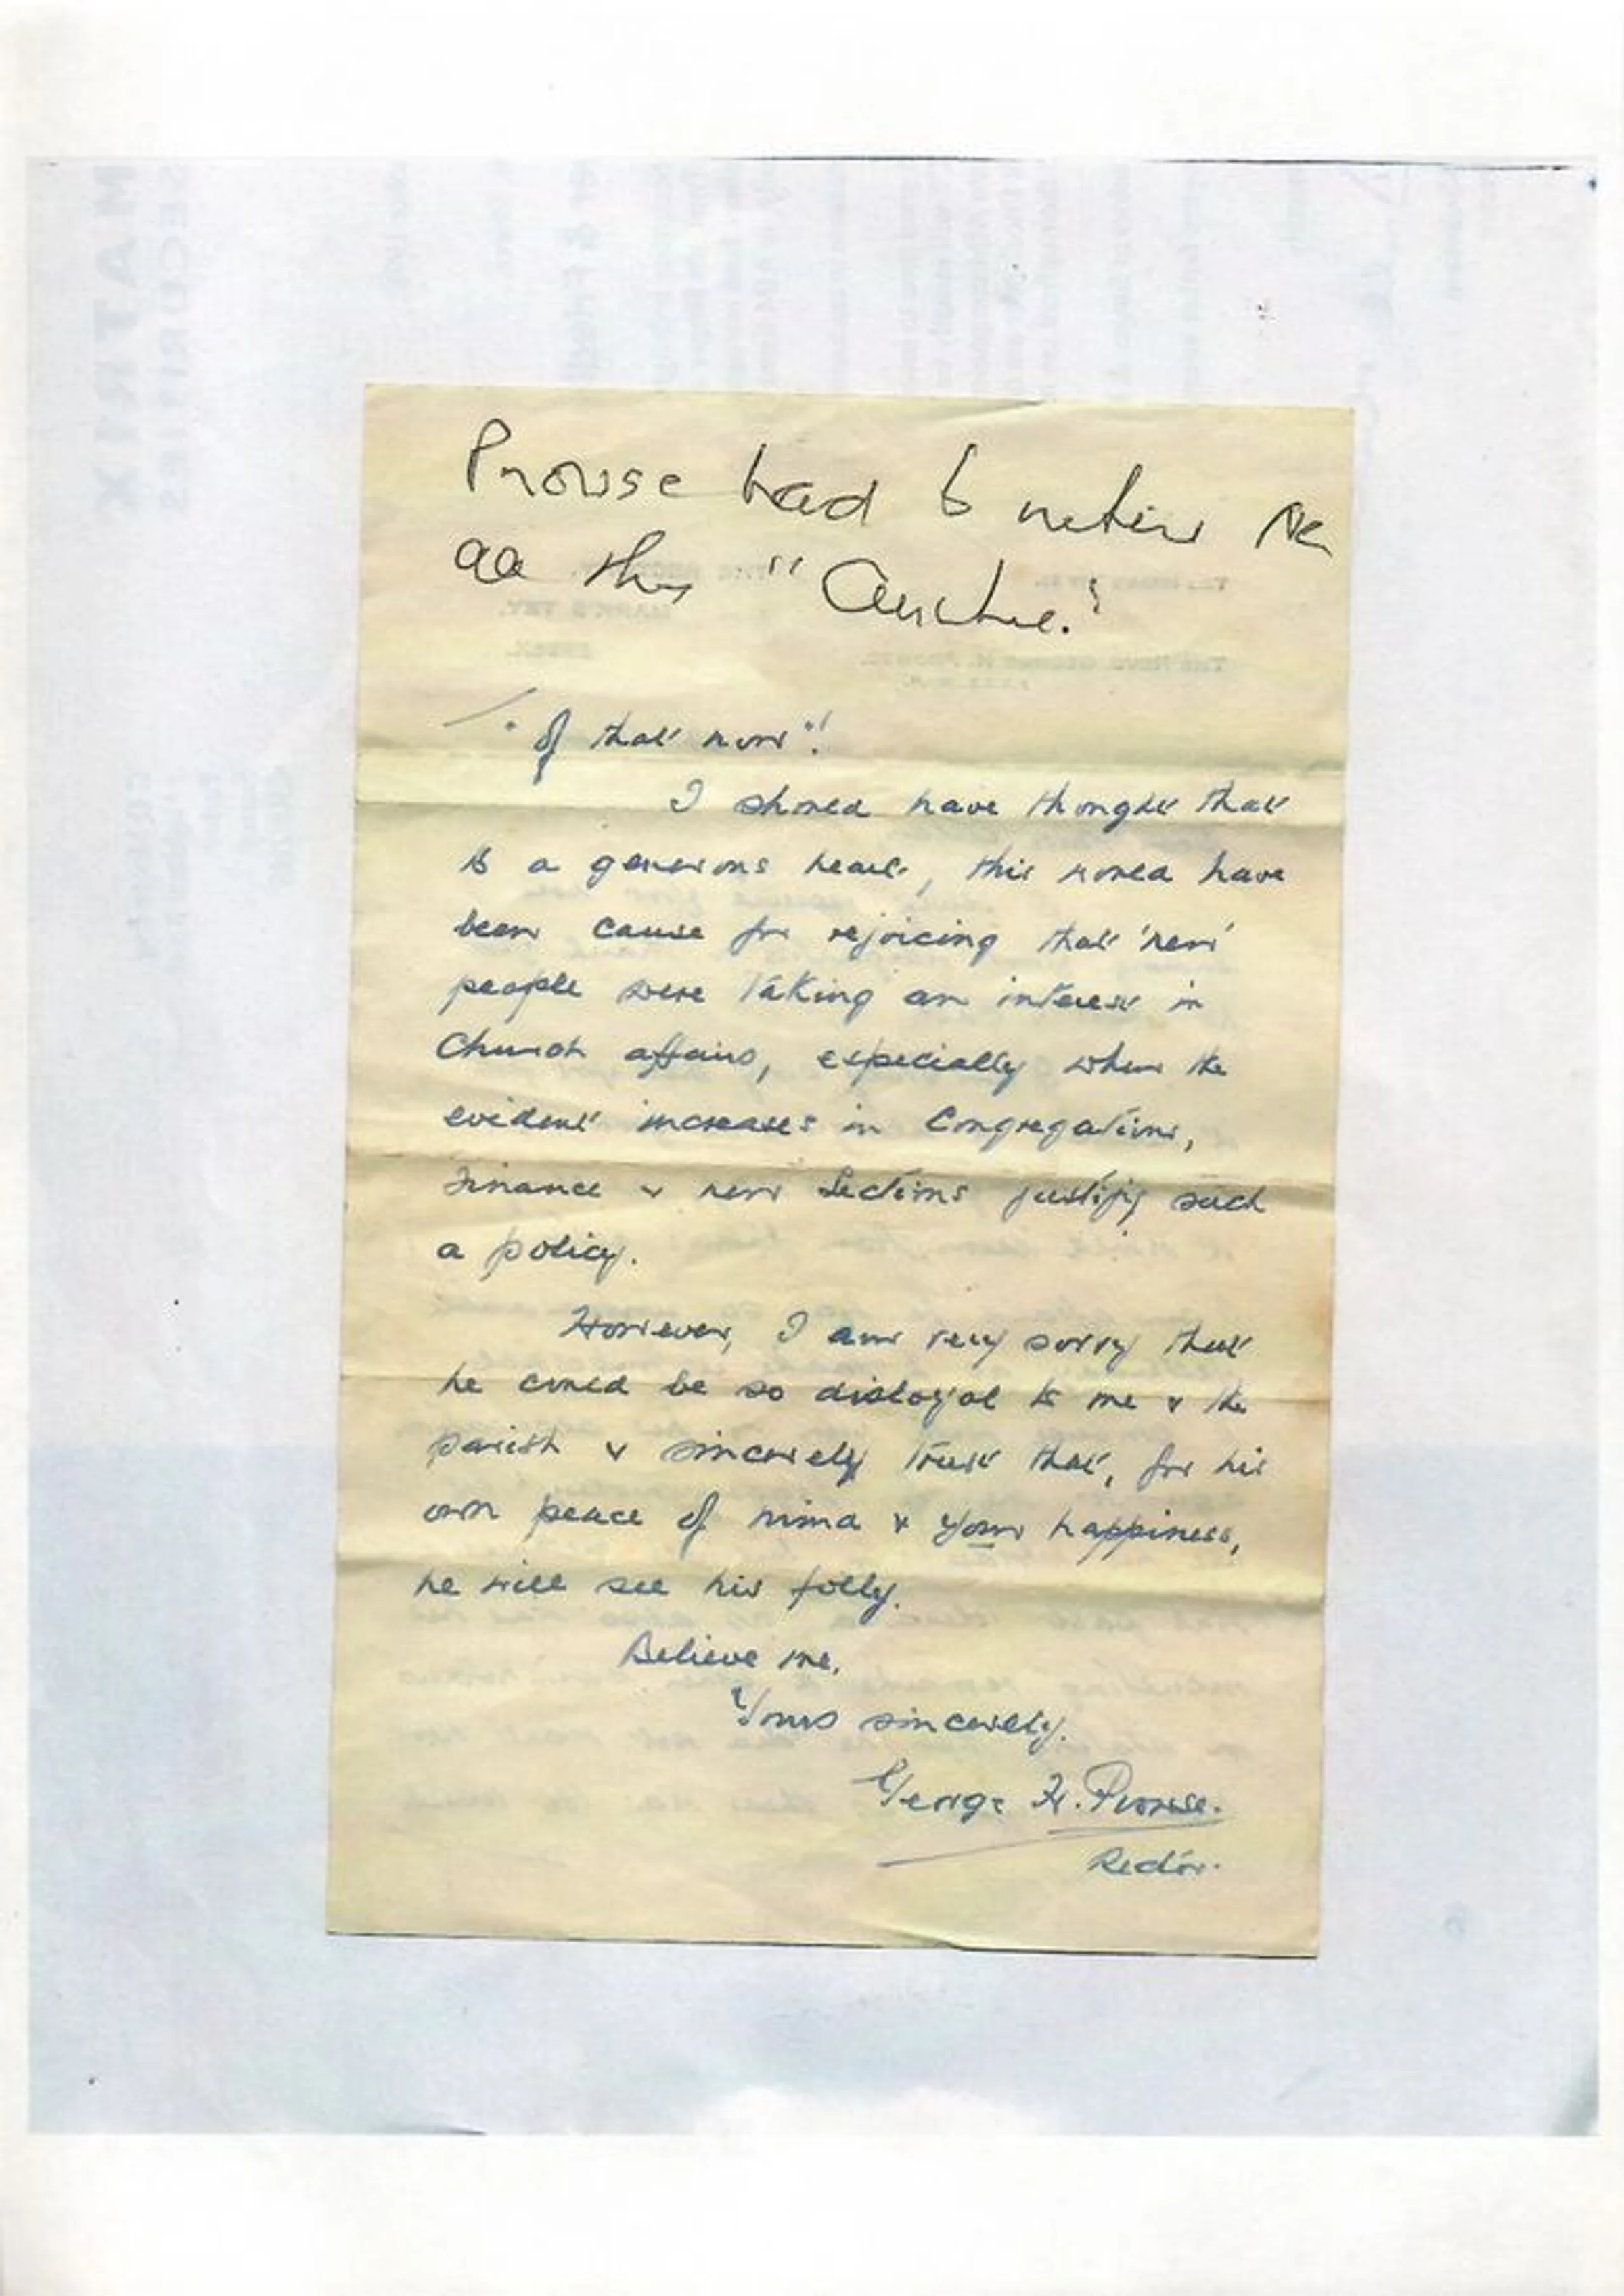 Prowse had to
all this "
" of that now"!
I should have thought that
to a generous heart, this would have
been cause for rejoicing that 'new'
people were taking an interest in
Church affairs, especially when the
evident increases in Congregations,
Finance & new Sections justify such
a policy.
However, I am very sorry that
he could be so disloyal to me & the
parish & sincerely trust that, for his
own peace of mind & your happiness,
he will see his folly.
Believe me,
Yours sincerely.
George H. Prowse.
Rector.
MATRIX
SECURITIES
THE REVD. GEORGE H. PROWSE.
MARKS TEY.
ESSEX.